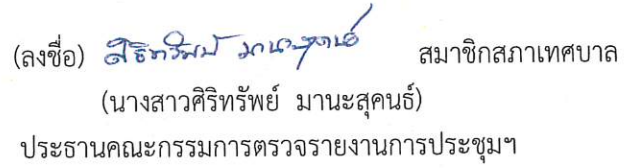 (ลงชื่อ) ศิริทรัพย์ มานะสุคนธ์ สมาชิกสภาเทศบาล
(นางสาวศิริทรัพย์ มานะสุคนธ์)
ประธานคณะกรรมการตรวจรายงานการประชุมฯ